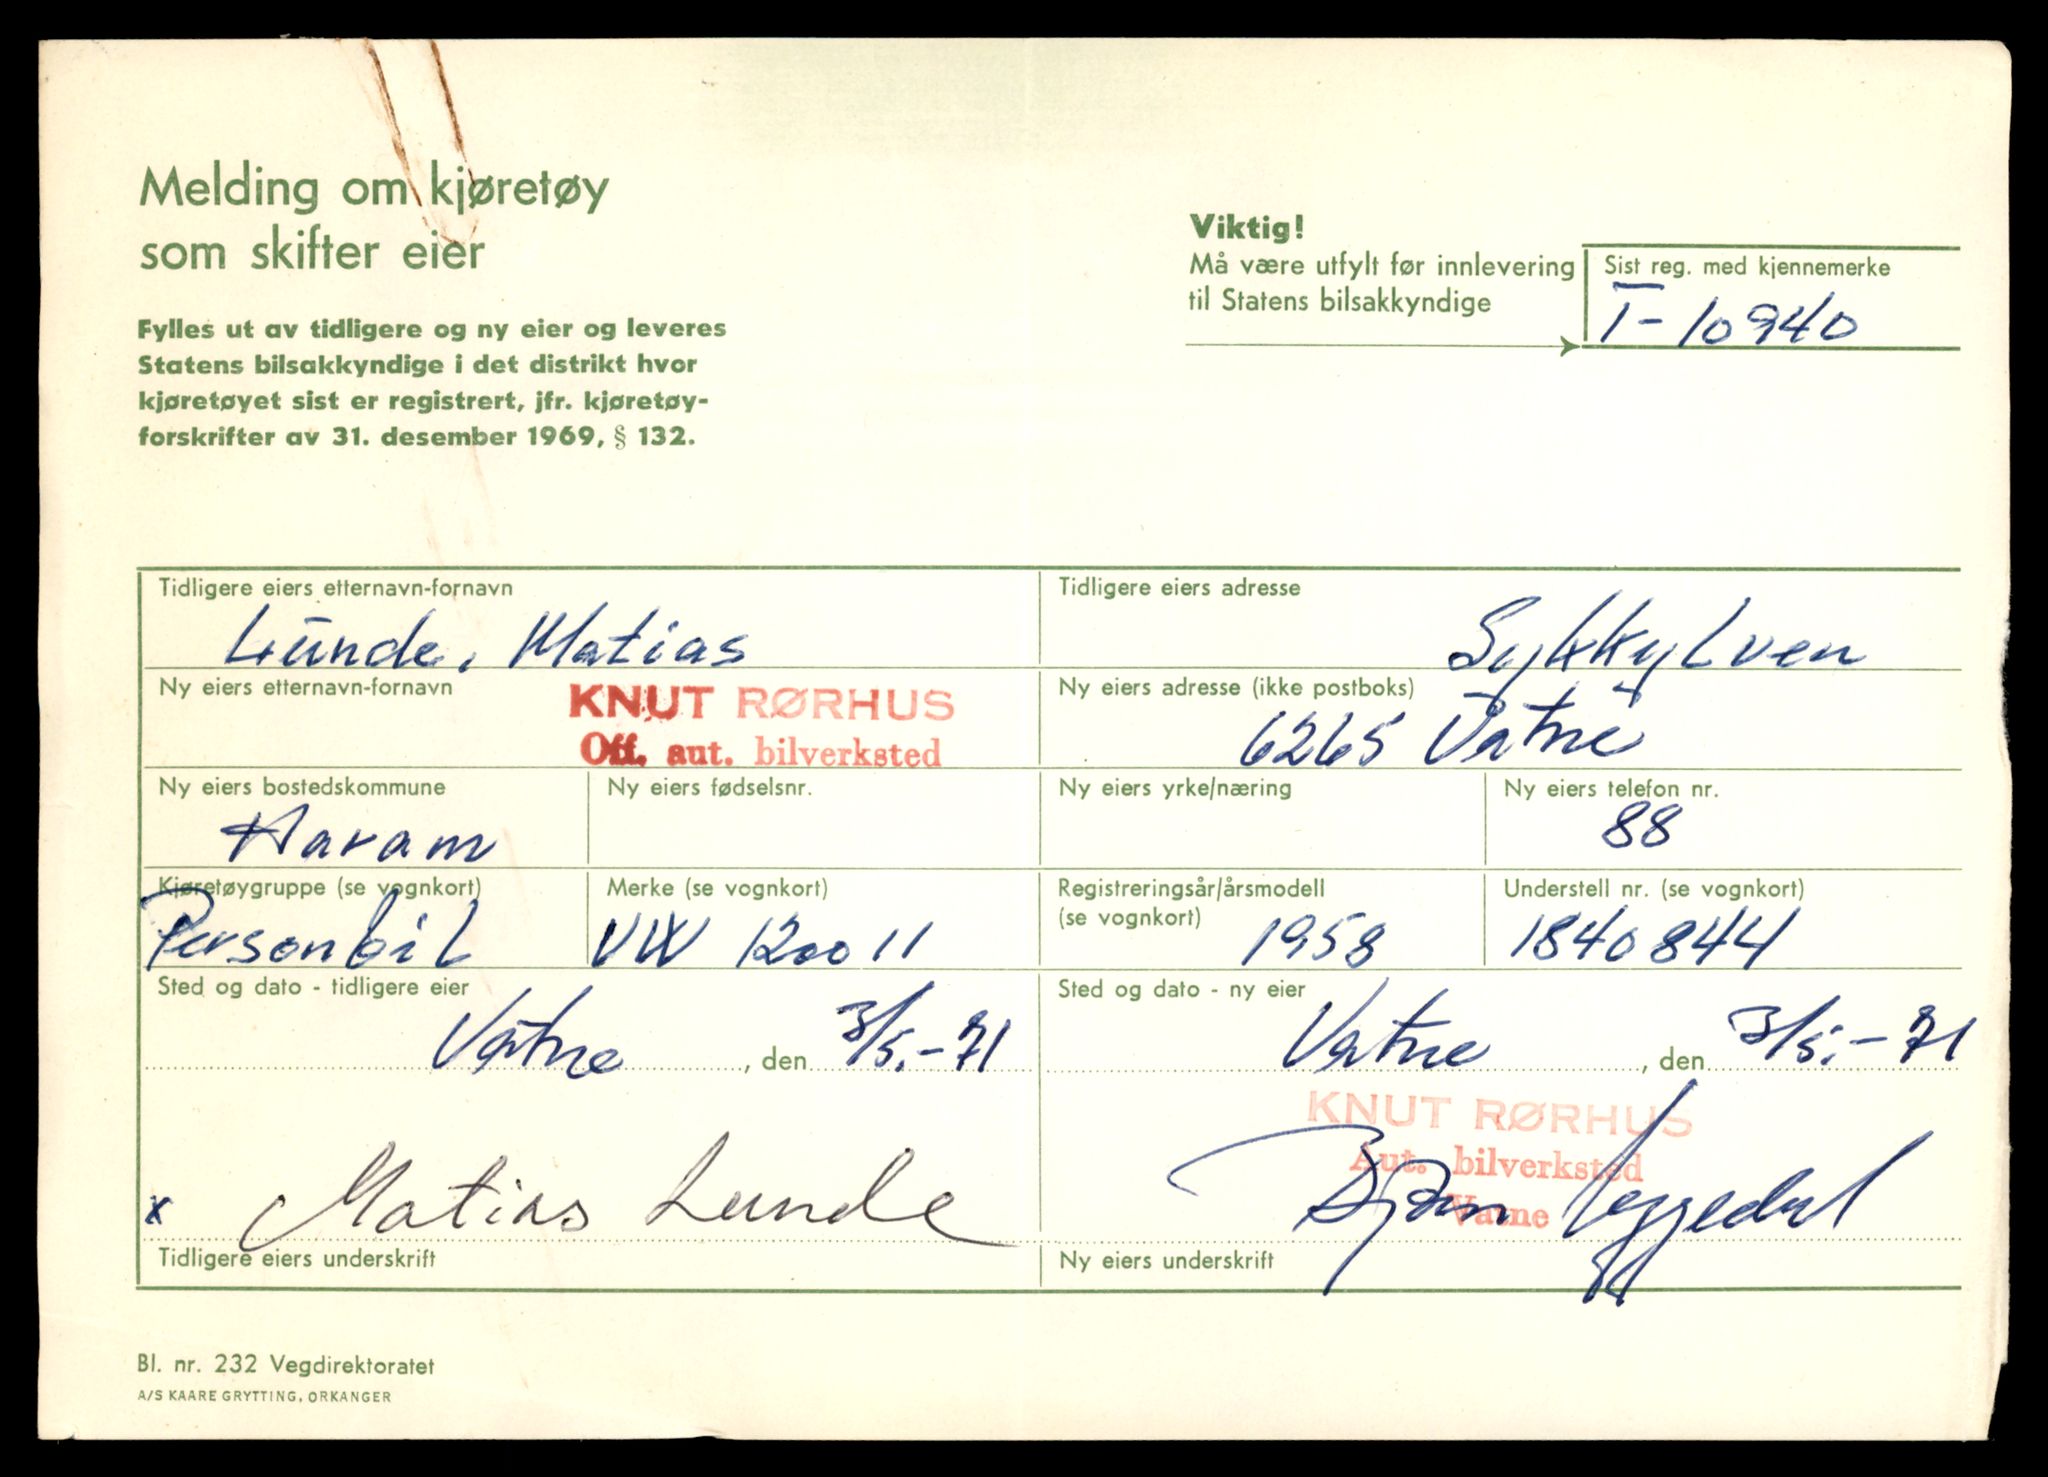 Melding om kjøretøy
som skifter eier
Fylles ut av tidligere og ny eier og leveres
Statens bilsakkyndige i det distrikt hvor
kjøretøyet sist er registrert, jfr. kjøretøy-
forskrifter av 31. desember 1969, § 132.
Viktig!
Må være utfylt før innlevering
til Statens bilsakkyndige
Sist reg. med kjennemerke
T-10940
Tidligere eiers etternavn-fornavn
Lunde, Matias
Tidligere eiers adresse
Sykkylven
Ny eiers etternavn-fornavn
KNUT RØRHUS
Off. aut. bilverksted
Ny eiers adresse (ikke postboks)
6265 Vatne
Ny eiers bostedskommune
Haram
Ny eiers fødselsnr.
Ny eiers yrke/næring
Ny eiers telefon nr.
88
Kjøretøygruppe (se vognkort)
Personbil
Merke (se vognkort)
VW 1200 11
Registreringsår/årsmodell
(se vognkort)
1958
Understell nr. (se vognkort)
1840844
Sted og dato - tidligere eier
Vatne, den 3/5.-71
Sted og dato - ny eier
Vatne, den 3/5.-71
x Matias Lunde
Tidligere eiers underskrift
KNUT RØRHUS
Aut. bilverksted
Vatne
Bjørn
Ny eiers underskrift
Bl. nr. 232 Vegdirektoratet
A/S KAARE GRYTTING, ORKANGER